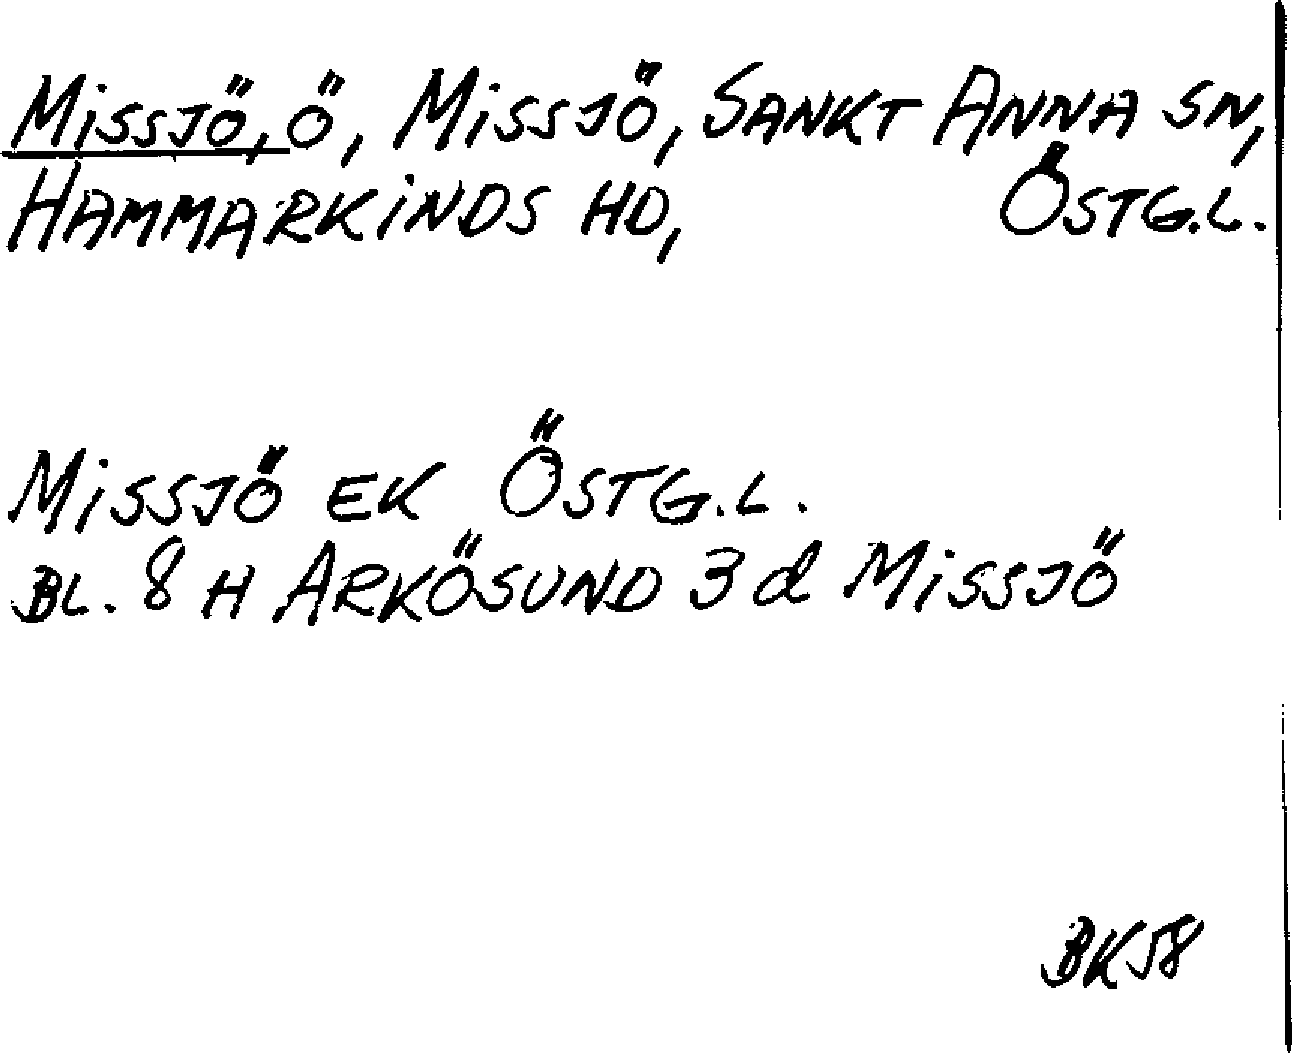 Missjö, ö, Missjö, Sankt Anna sn,
Hammarkinds hd, Östg.l.
Missjö EK Östg.l.
Bl. 8 H Arkösund 3 d Missjö
BK 58